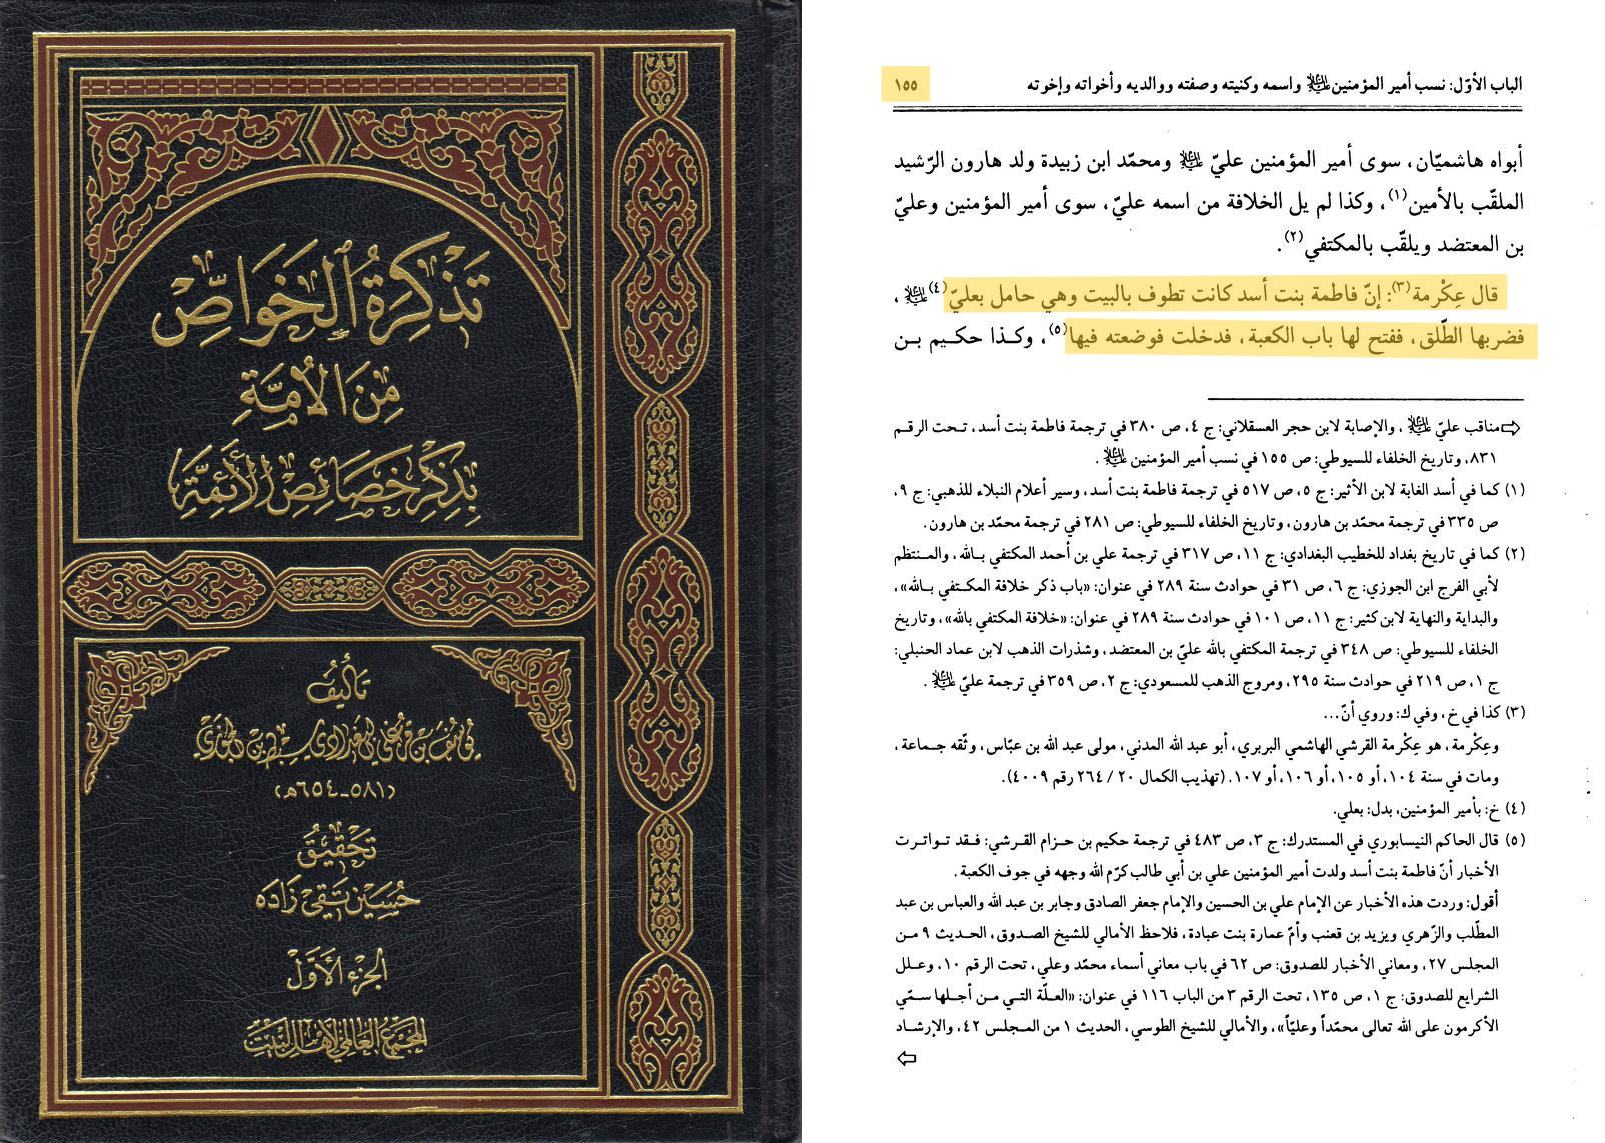 تَذكِرَةُ ٱلخَوَاصِّ
مِنَ الأُمَّةِ
بِذِكْرِ خَصَائِصِ الأَئِمَّةِ
تَأليفُ
(٥٨١ـ٦٥٤هـ)
تَحْقيقُ
حُسَين تَقي زادَه
الجزء الأوّل
المجمع العالمي لأهل البيت
الباب الأوّل: نسب أمير المؤمنين عليه السلام واسمه وكنيته وصفته ووالديه وأخواته وإخوته ١٥٥
أبواه هاشميّان، سوى أمير المؤمنين عليّ عليه السلام ومحمّد ابن زبيدة ولد هارون الرّشيد
الملقّب بالأمين(١)، وكذا لم يل الخلافة من اسمه عليّ، سوى أمير المؤمنين وعليّ
بن المعتضد ويلقّب بالمكتفي(٢).
قال عِكْرمة(٣): إنّ فاطمة بنت أسد كانت تطوف بالبيت وهي حامل بعليّ(٤) عليه السلام،
فضربها الطّلق، ففتح لها باب الكعبة، فدخلت فوضعته فيها(٥)، وكذا حكيم بن
⇨ مناقب عليّ عليه السلام، والإصابة لابن حجر العسقلاني: ج ٤، ص ٣٨٠ في ترجمة فاطمة بنت أسد، تحت الرقم
٨٣١، وتاريخ الخلفاء للسيوطي: ص ١٥٥ في نسب أمير المؤمنين عليه السلام.
(١) كما في أسد الغابة لابن الأثير: ج ٥، ص ٥١٧ في ترجمة فاطمة بنت أسد، وسير أعلام النبلاء للذهبي: ج ٩،
ص ٣٣٥ في ترجمة محمّد بن هارون، وتاريخ الخلفاء للسيوطي: ص ٢٨١ في ترجمة محمّد بن هارون.
(٢) كما في تاريخ بغداد للخطيب البغدادي: ج ١١، ص ٣١٧ في ترجمة علي بن أحمد المكتفي بالله، والمنتظم
لأبي الفرج ابن الجوزي: ج ٦، ص ٣١ في حوادث سنة ٢٨٩ في عنوان: «باب ذكر خلافة المكتفي بالله»،
والبداية والنهاية لابن كثير: ج ١١، ص ١٠١ في حوادث سنة ٢٨٩ في عنوان: «خلافة المكتفي بالله»، وتاريخ
الخلفاء للسيوطي: ص ٣٤٨ في ترجمة المكتفي بالله عليّ بن المعتضد، وشذرات الذهب لابن عماد الحنبلي:
ج ١، ص ٢١٩ في حوادث سنة ٢٩٥، ومروج الذهب للمسعودي: ج ٢، ص ٣٥٩ في ترجمة عليّ عليه السلام.
(٣) كذا في خ، وفي ك: وروي أنّ...
وعِكْرمة، هو عِكْرمة القرشي الهاشمي البربري، أبو عبد الله المدني، مولى عبد الله بن عبّاس، وثّقه جماعة،
ومات في سنة ١٠٤، أو ١٠٥، أو ١٠٦، أو ١٠٧. (تهذيب الكمال ٢٠ / ٢٦٤ رقم ٤٠٠٩).
(٤) خ: بأمير المؤمنين، بدل: بعلي.
(٥) قال الحاكم النيسابوري في المستدرك: ج ٣، ص ٤٨٣ في ترجمة حكيم بن حزام القرشي: فقد تواترت
الأخبار أنّ فاطمة بنت أسد ولدت أمير المؤمنين علي بن أبي طالب كرّم الله وجهه في جوف الكعبة.
أقول: وردت هذه الأخبار عن الإمام علي بن الحسين والإمام جعفر الصادق وجابر بن عبد الله والعباس بن عبد
المطّلب والزّهري ويزيد بن قعنب وأمّ عمارة بنت عبادة، فلاحظ الأمالي للشيخ الصدوق، الحديث ٩ من
المجلس ٢٧، ومعاني الأخبار للصدوق: ص ٦٢ في باب معاني أسماء محمّد وعلي، تحت الرقم ١٠، وعلل
الشرايع للصدوق: ج ١، ص ١٣٥، تحت الرقم ٣ من الباب ١١٦ في عنوان: «العلّة التي من أجلها سمّي
الأكرمون على الله تعالى محمّداً وعليّاً»، والأمالي للشيخ الطوسي، الحديث ١ من المجلس ٤٢، والإرشاد
⇦